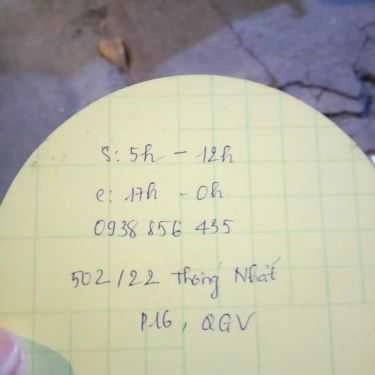 S: 5h - 12h
C: 17h - 0h
0938 856 435
502/22 Thống Nhất
P.16, QGV